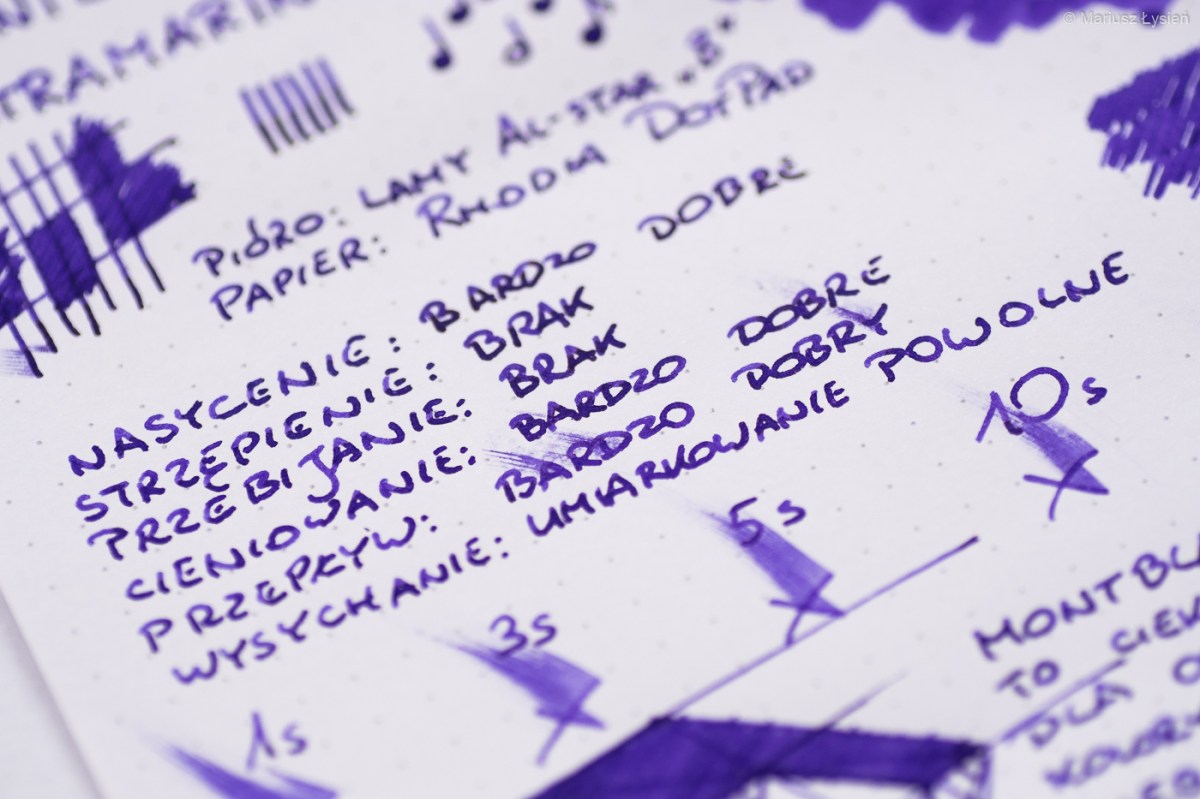 © Mariusz Łysień
PIÓRO: LAMY AL-STAR „B"
PAPIER: RHODIA DOTPAD
NASYCENIE: BARDZO DOBRE
STRZĘPIENIE: BRAK
PRZEBIJANIE: BRAK
CIENIOWANIE: BARDZO DOBRE
PRZEPŁYW: BARDZO DOBRY
WYSYCHANIE: UMIARKOWANIE POWOLNE
1s
3s
5s
10s
MONTBL
TO CIEK
DLA